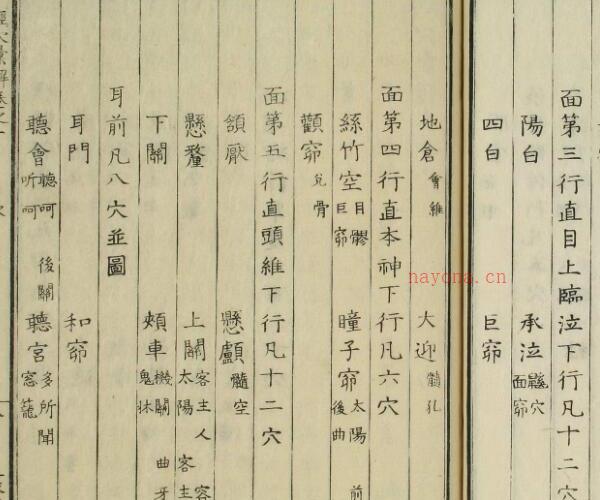 面第三行直目上臨泣下行凡十二穴
陽白 承泣 鼷穴 面窌
四白 巨窌
地倉 會維 大迎 髓孔
面第四行直本神下行凡六穴
絲竹空 目髎 巨窌 瞳子窌 太陽 前 後曲
顴窌 兌骨
面第五行直頭維下行凡十二穴
頷厭 懸顱 髓空
懸釐 上關 客主人 客 太陽 客主
下關 頰車 機關 曲牙 鬼牀
耳前凡八穴並圖
耳門 和窌
聽會 聽呵 後關 听呵 聽宮 多所聞 窓籠
nayona.cn